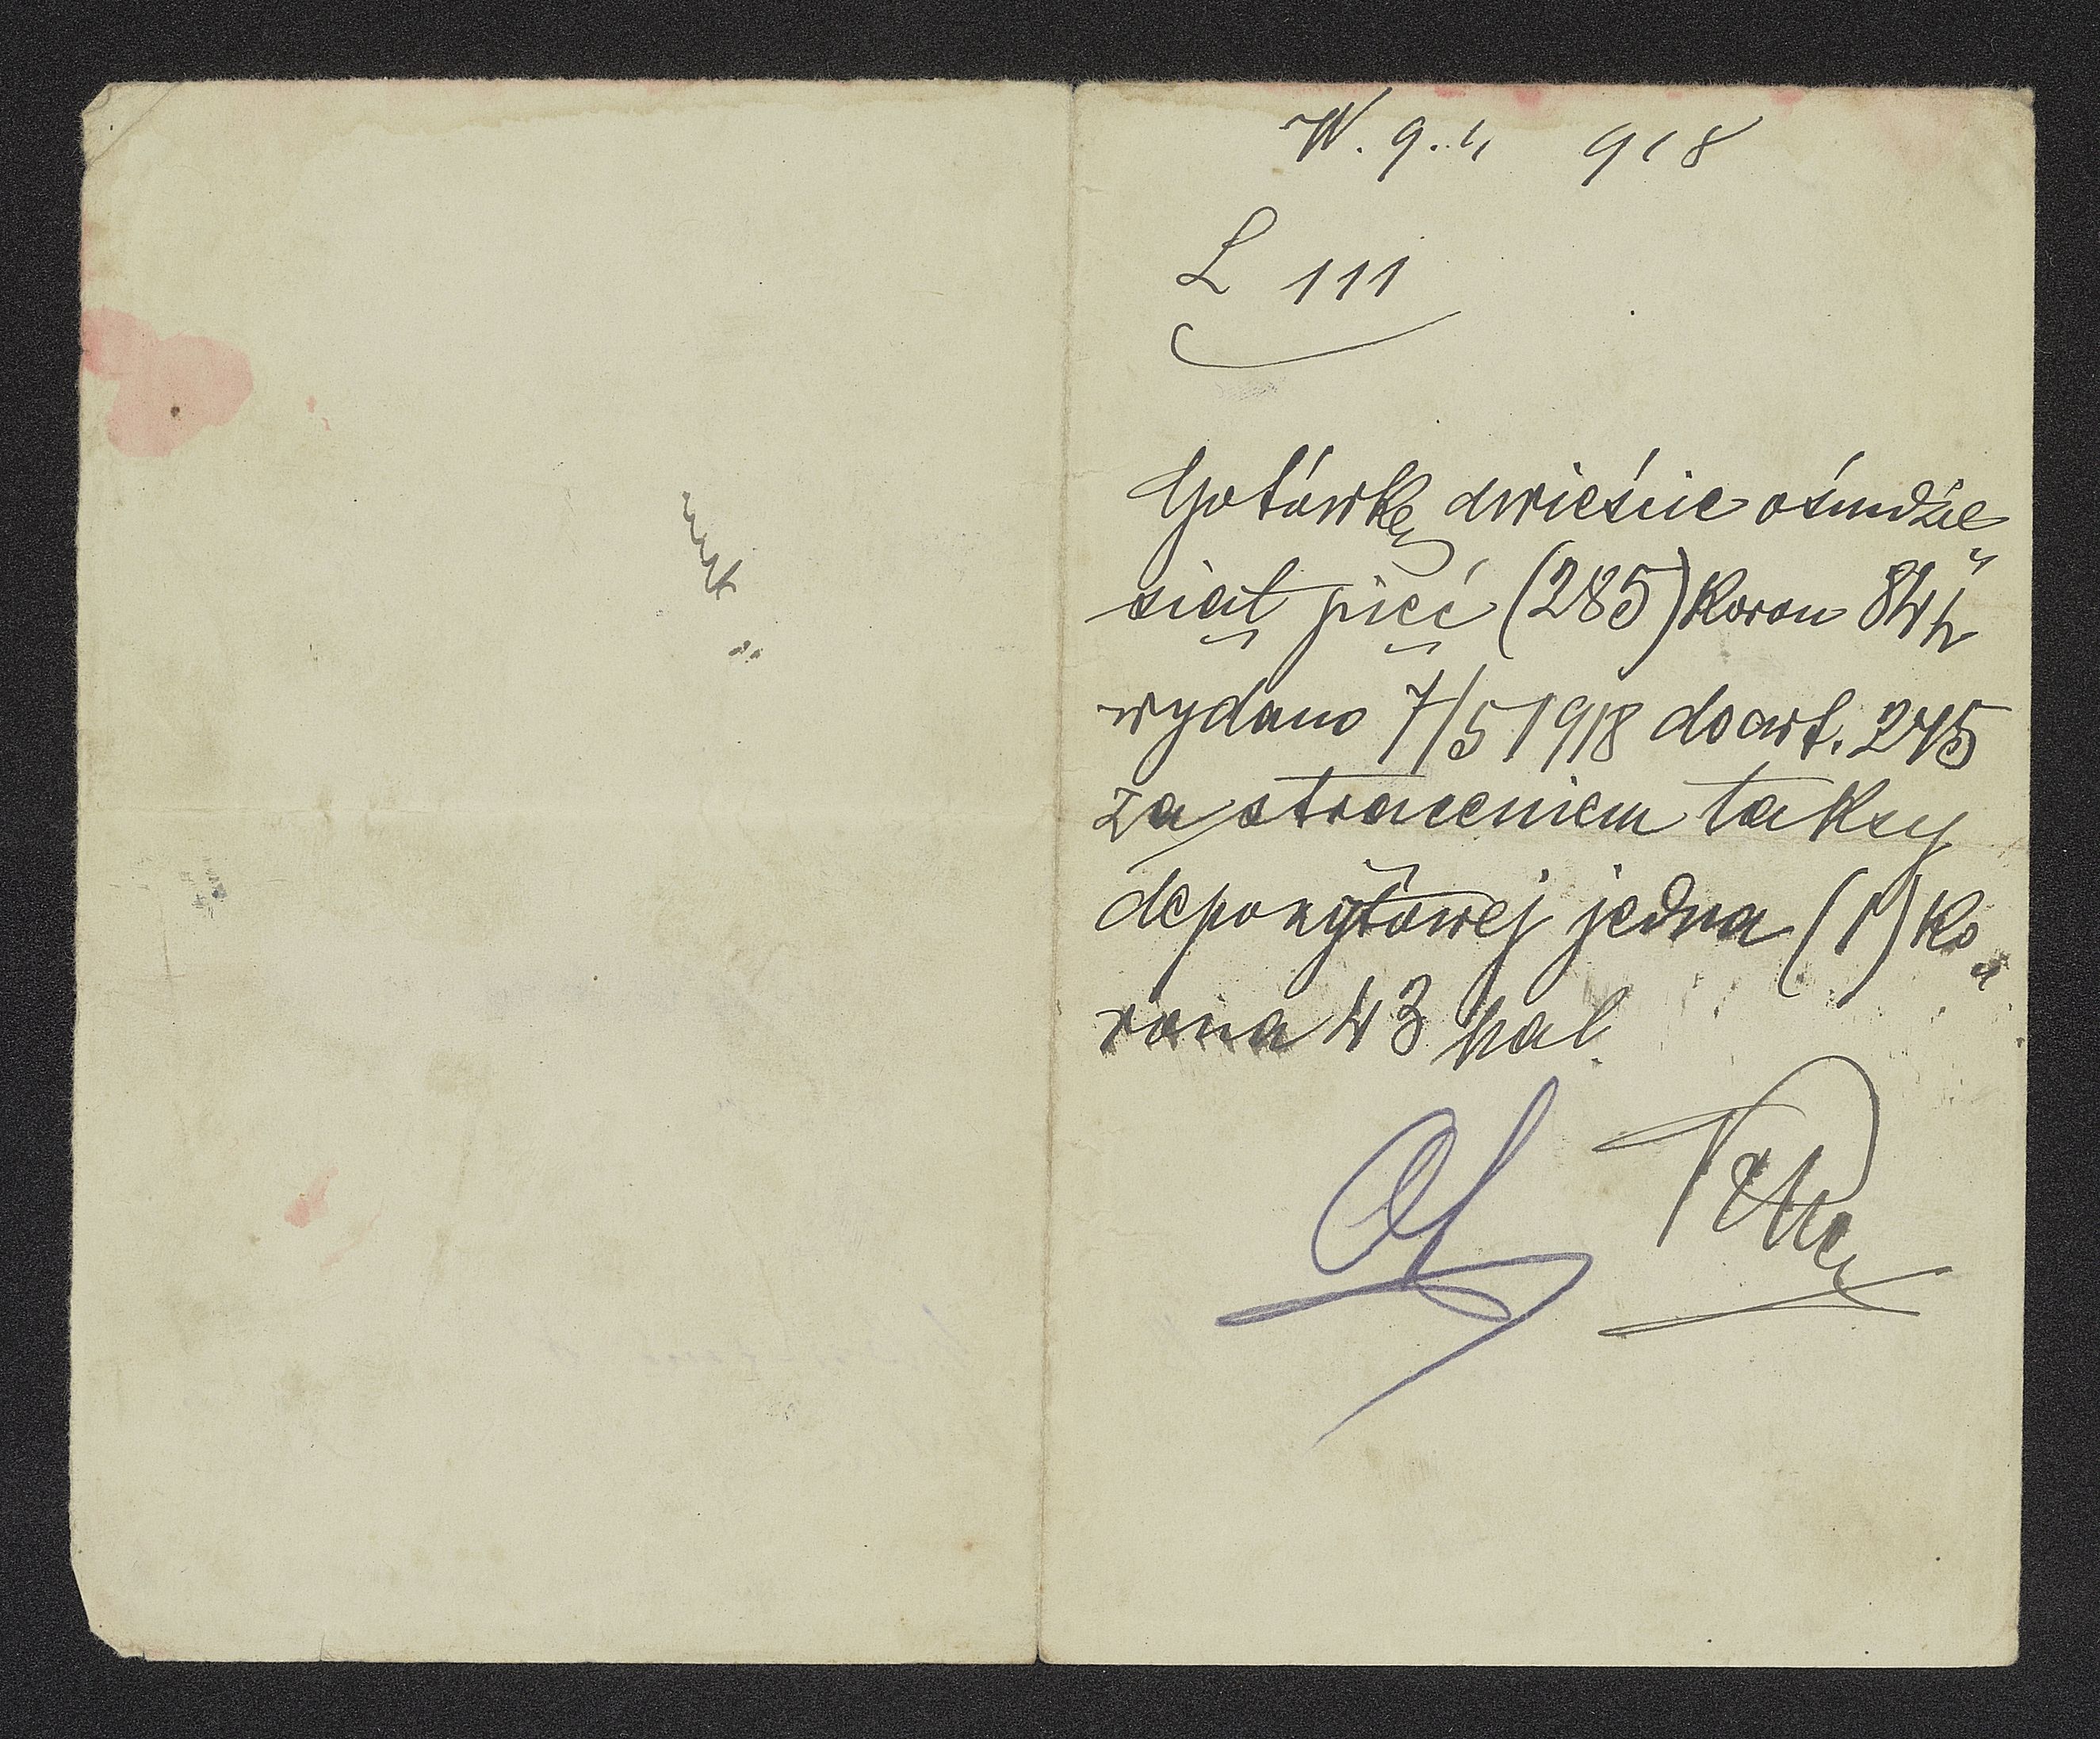 W. 9.4 918
L 111
Gotówkę dwieście ośmdzie„
siąt pięć (285) koron 84 h
wydano 7/5 1918 do art. 245
za straceniem taksy
depozytowej jedna (1) ko„
rona 43 hal